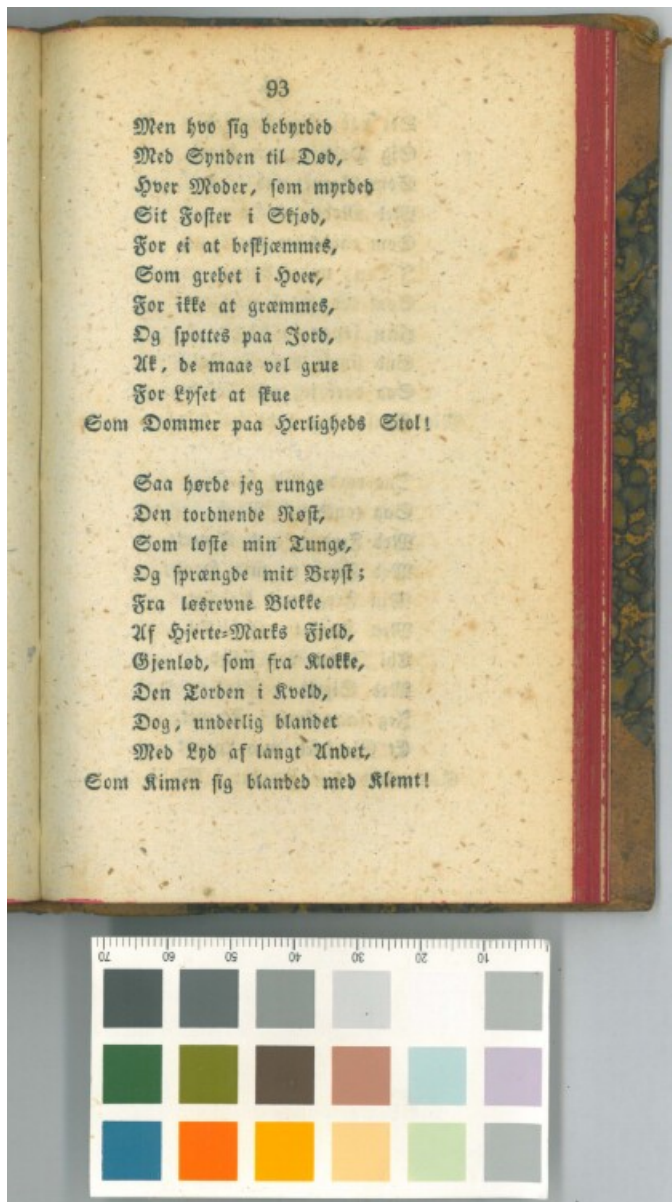 93
Men hvo sig bebyrded
Med Synden til Død,
Hver Moder, som myrded
Sit Foster i Skjød,
For ei at beskjæmmes,
Som grebet i Hoer,
For ikke at græmmes,
Og spottes paa Jord,
Ak, de maae vel grue
For Lyset at skue
Som Dommer paa Herligheds Stol!
Saa hørde jeg runge
Den tordnende Røst,
Som løste min Tunge,
Og sprængde mit Bryst;
Fra løsrevne Blokke
Af Hjerte-Marks Fjeld,
Gjenlød, som fra Klokke,
Den Torden i Kveld,
Dog, underlig blandet
Med Lyd af langt Andet,
Som Kimen sig blanded med Klemt!
70 60 50 40 30 20 10